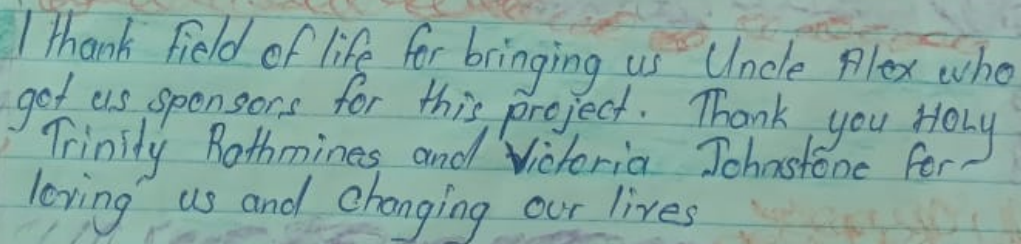 I thank field of life for bringing us Uncle Alex who
got us sponsors for this project. Thank you HOLy
Trinity Rathmines and Victoria Johnstone for
loving us and changing our lives